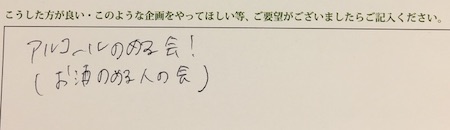 こうした方が良い・このような企画をやってほしい等、ご要望がございましたらご記入ください。
アルコールのめる会!
(お酒のめる人の会)